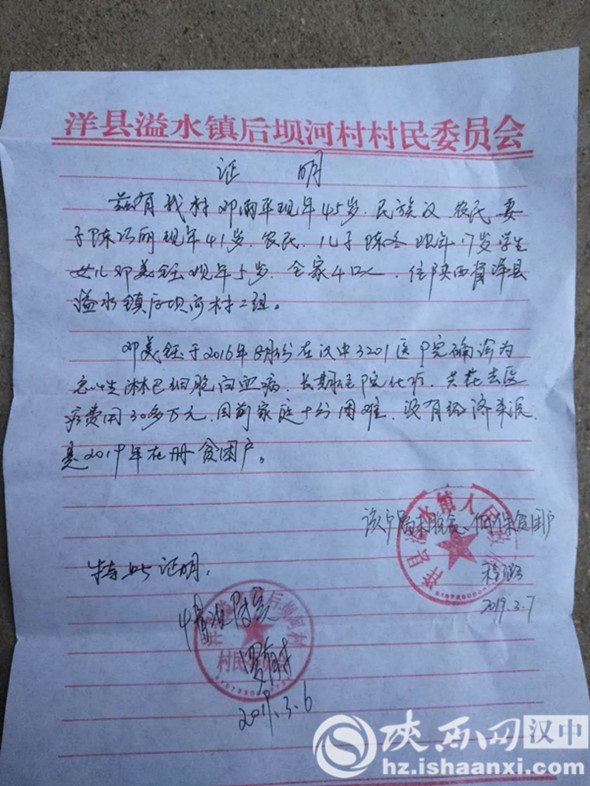 洋县溢水镇后坝河村村民委员会
证 明
兹有我村邓雨平现年45岁,民族汉,农民,妻
子陈巧丽现年41岁,农民,儿子陈冬现年17岁学生
女儿邓美钰现年5岁,全家4口人,住陕西省洋县
溢水镇后坝河村二组。
邓美钰于2016年8月份在汉中3201医院确诊为
急性淋巴细胞白血病,长期住院化疗,共花去医
疗费用30多万元,目前家庭十分困难,没有经济来源
是2019年在册贫困户。
该户属未脱贫、低保贫困户
特此证明:
2019.3.7
情况属实
2019.3.6
陕西网 汉中
hz.ishaanxi.com